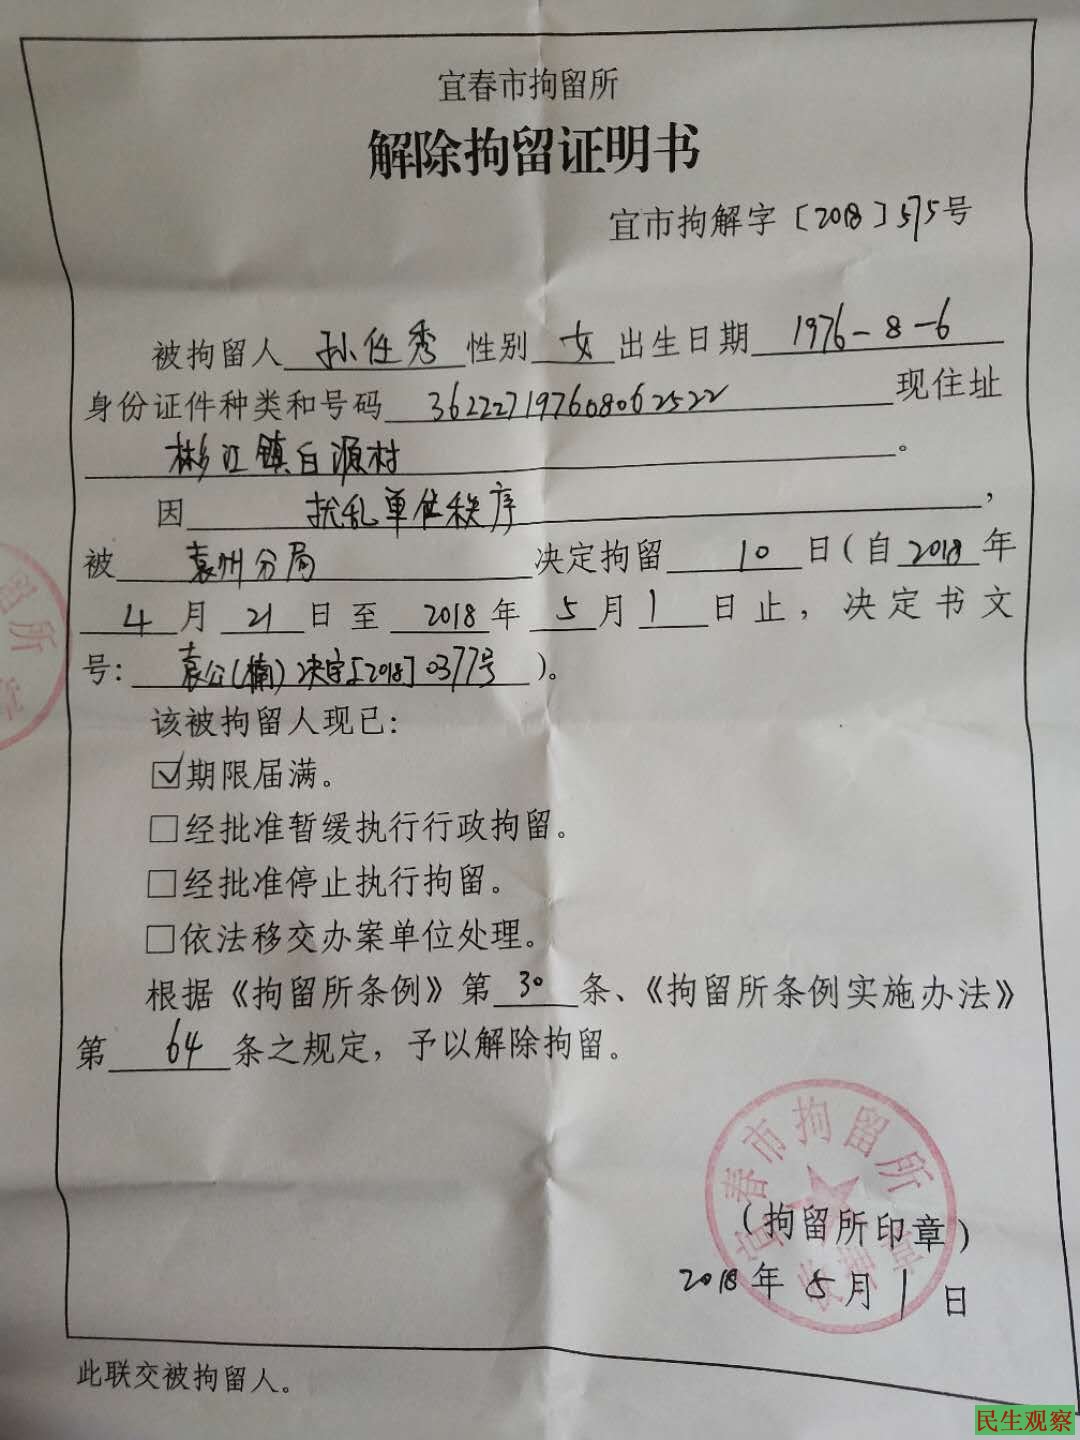 宜春市拘留所
解除拘留证明书
宜市拘解字〔2018〕575号
被拘留人 孙任秀 性别 女 出生日期 1976-8-6
身份证件种类和号码 362227197608062522 现住址
彬江镇白源村。
因 扰乱单位秩序，
被 袁州分局 决定拘留 10 日(自 2018 年
4 月 21 日至 2018 年 5 月 1 日止，决定书文
号: 袁公(楠)决字[2018]0377号 )。
该被拘留人现已:
☑期限届满。
□经批准暂缓执行行政拘留。
□经批准停止执行拘留。
□依法移交办案单位处理。
根据《拘留所条例》第 30 条、《拘留所条例实施办法》
第 64 条之规定，予以解除拘留。
宜春市拘留所
(拘留所印章)
2018 年 5 月 1 日
此联交被拘留人。
民生观察